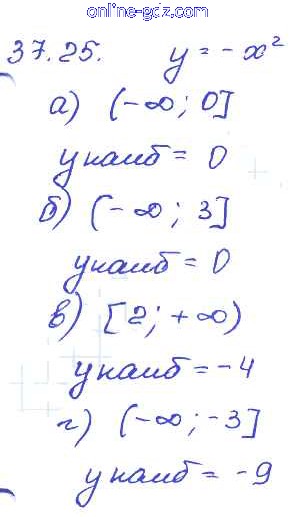 online-gdz.com
37.25. y = -x²
а) (-∞; 0]
y наиб = 0
б) (-∞; 3]
y наиб = 0
в) [2; +∞)
y наиб = -4
г) (-∞; -3]
y наиб = -9